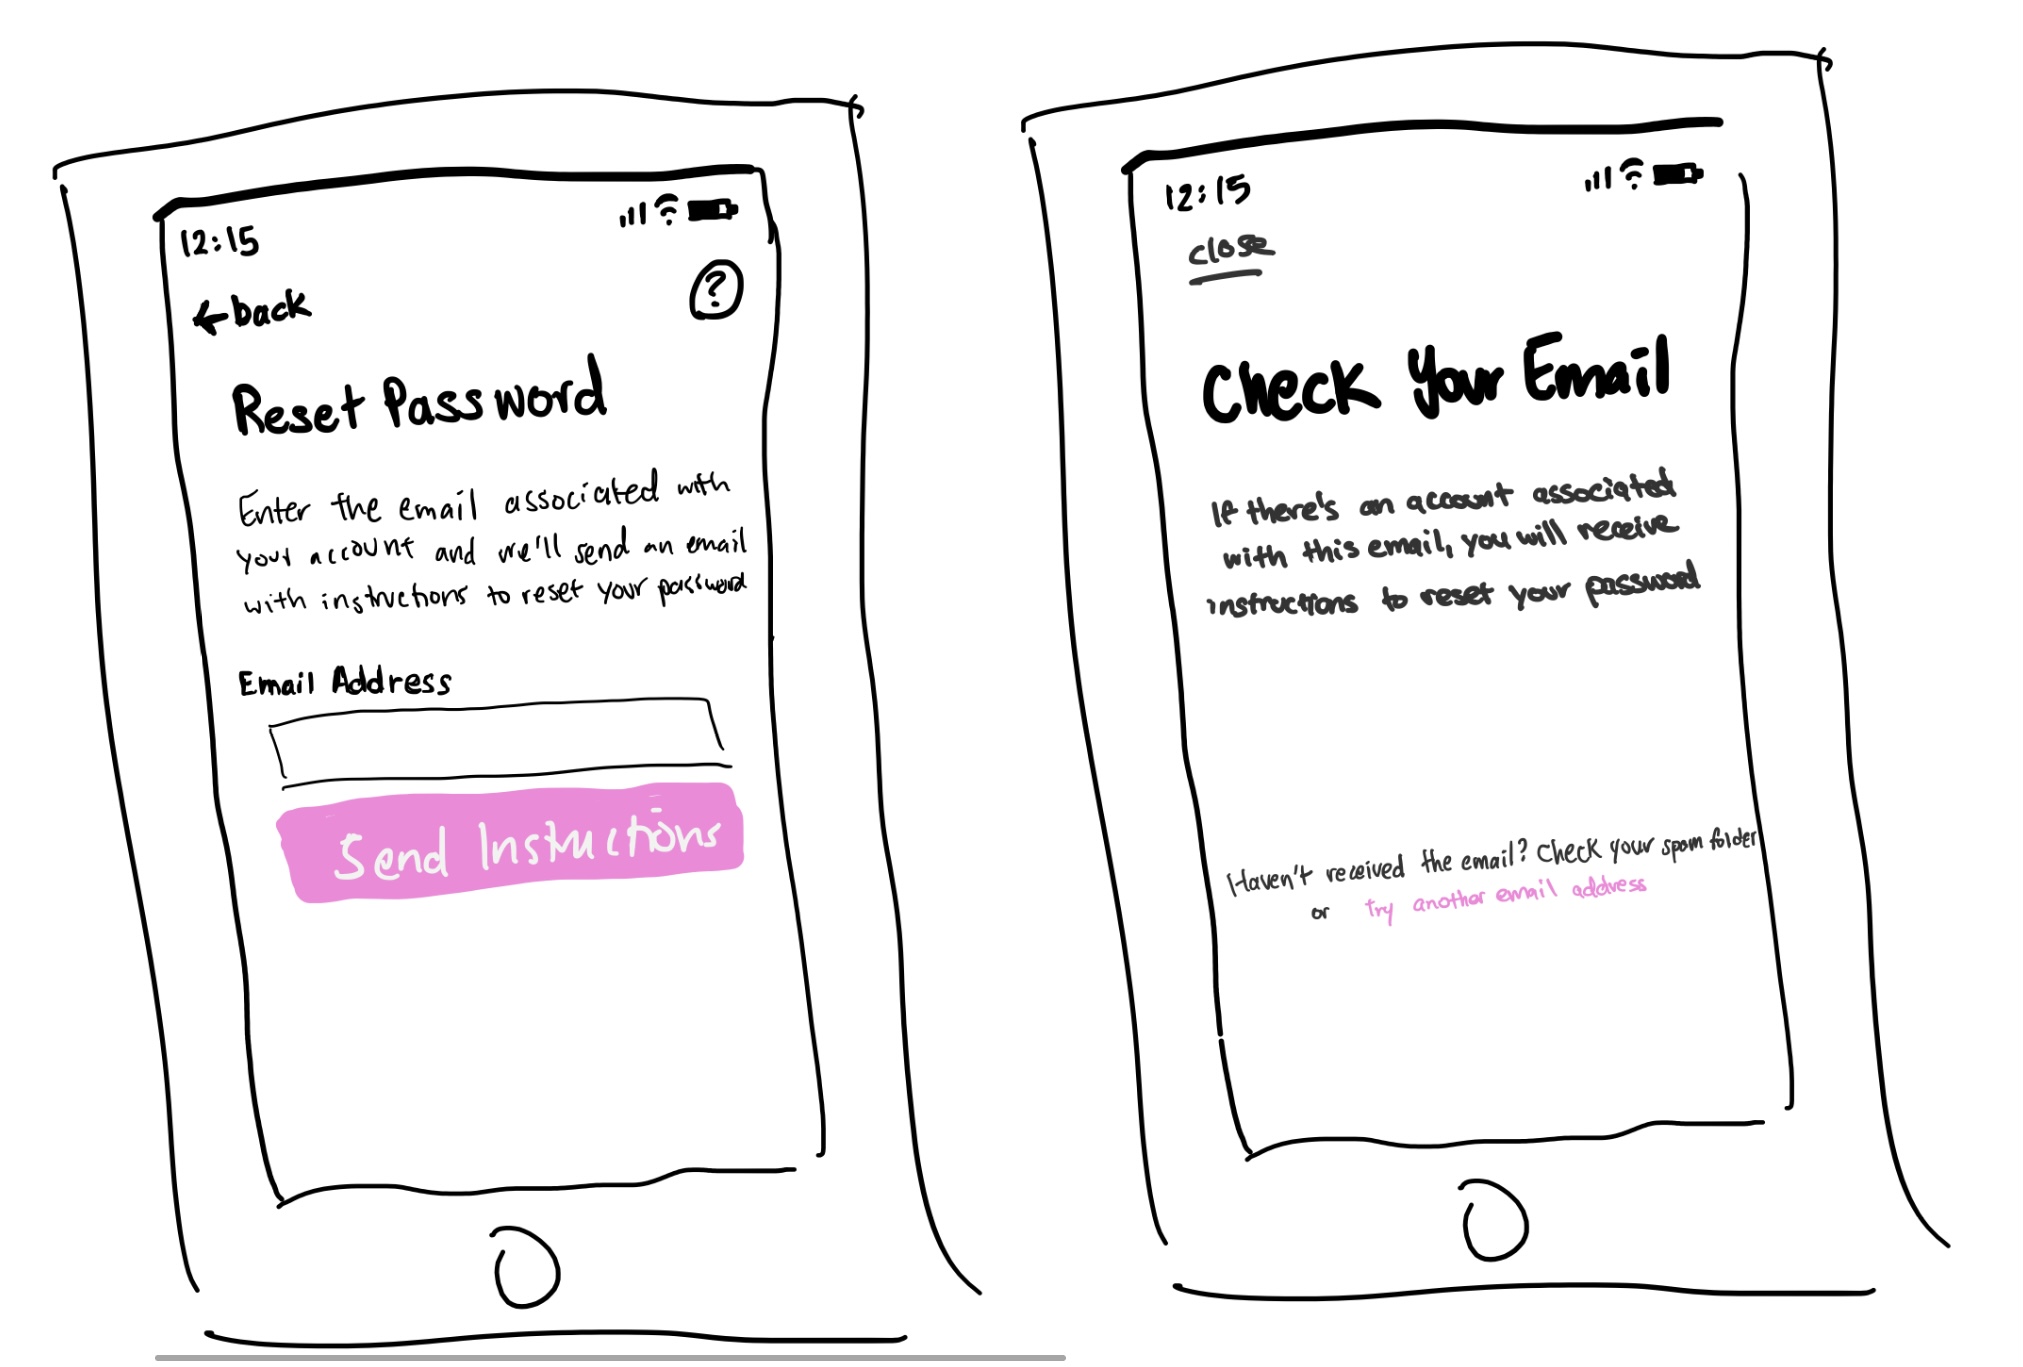 12:15
←back
?
Reset Password
Enter the email associated with
your account and we'll send an email
with instructions to reset your password
Email Address
Send Instructions
12:15
close
Check Your Email
If there's an account associated
with this email, you will receive
instructions to reset your password
Haven't received the email? Check your spam folder
or try another email address